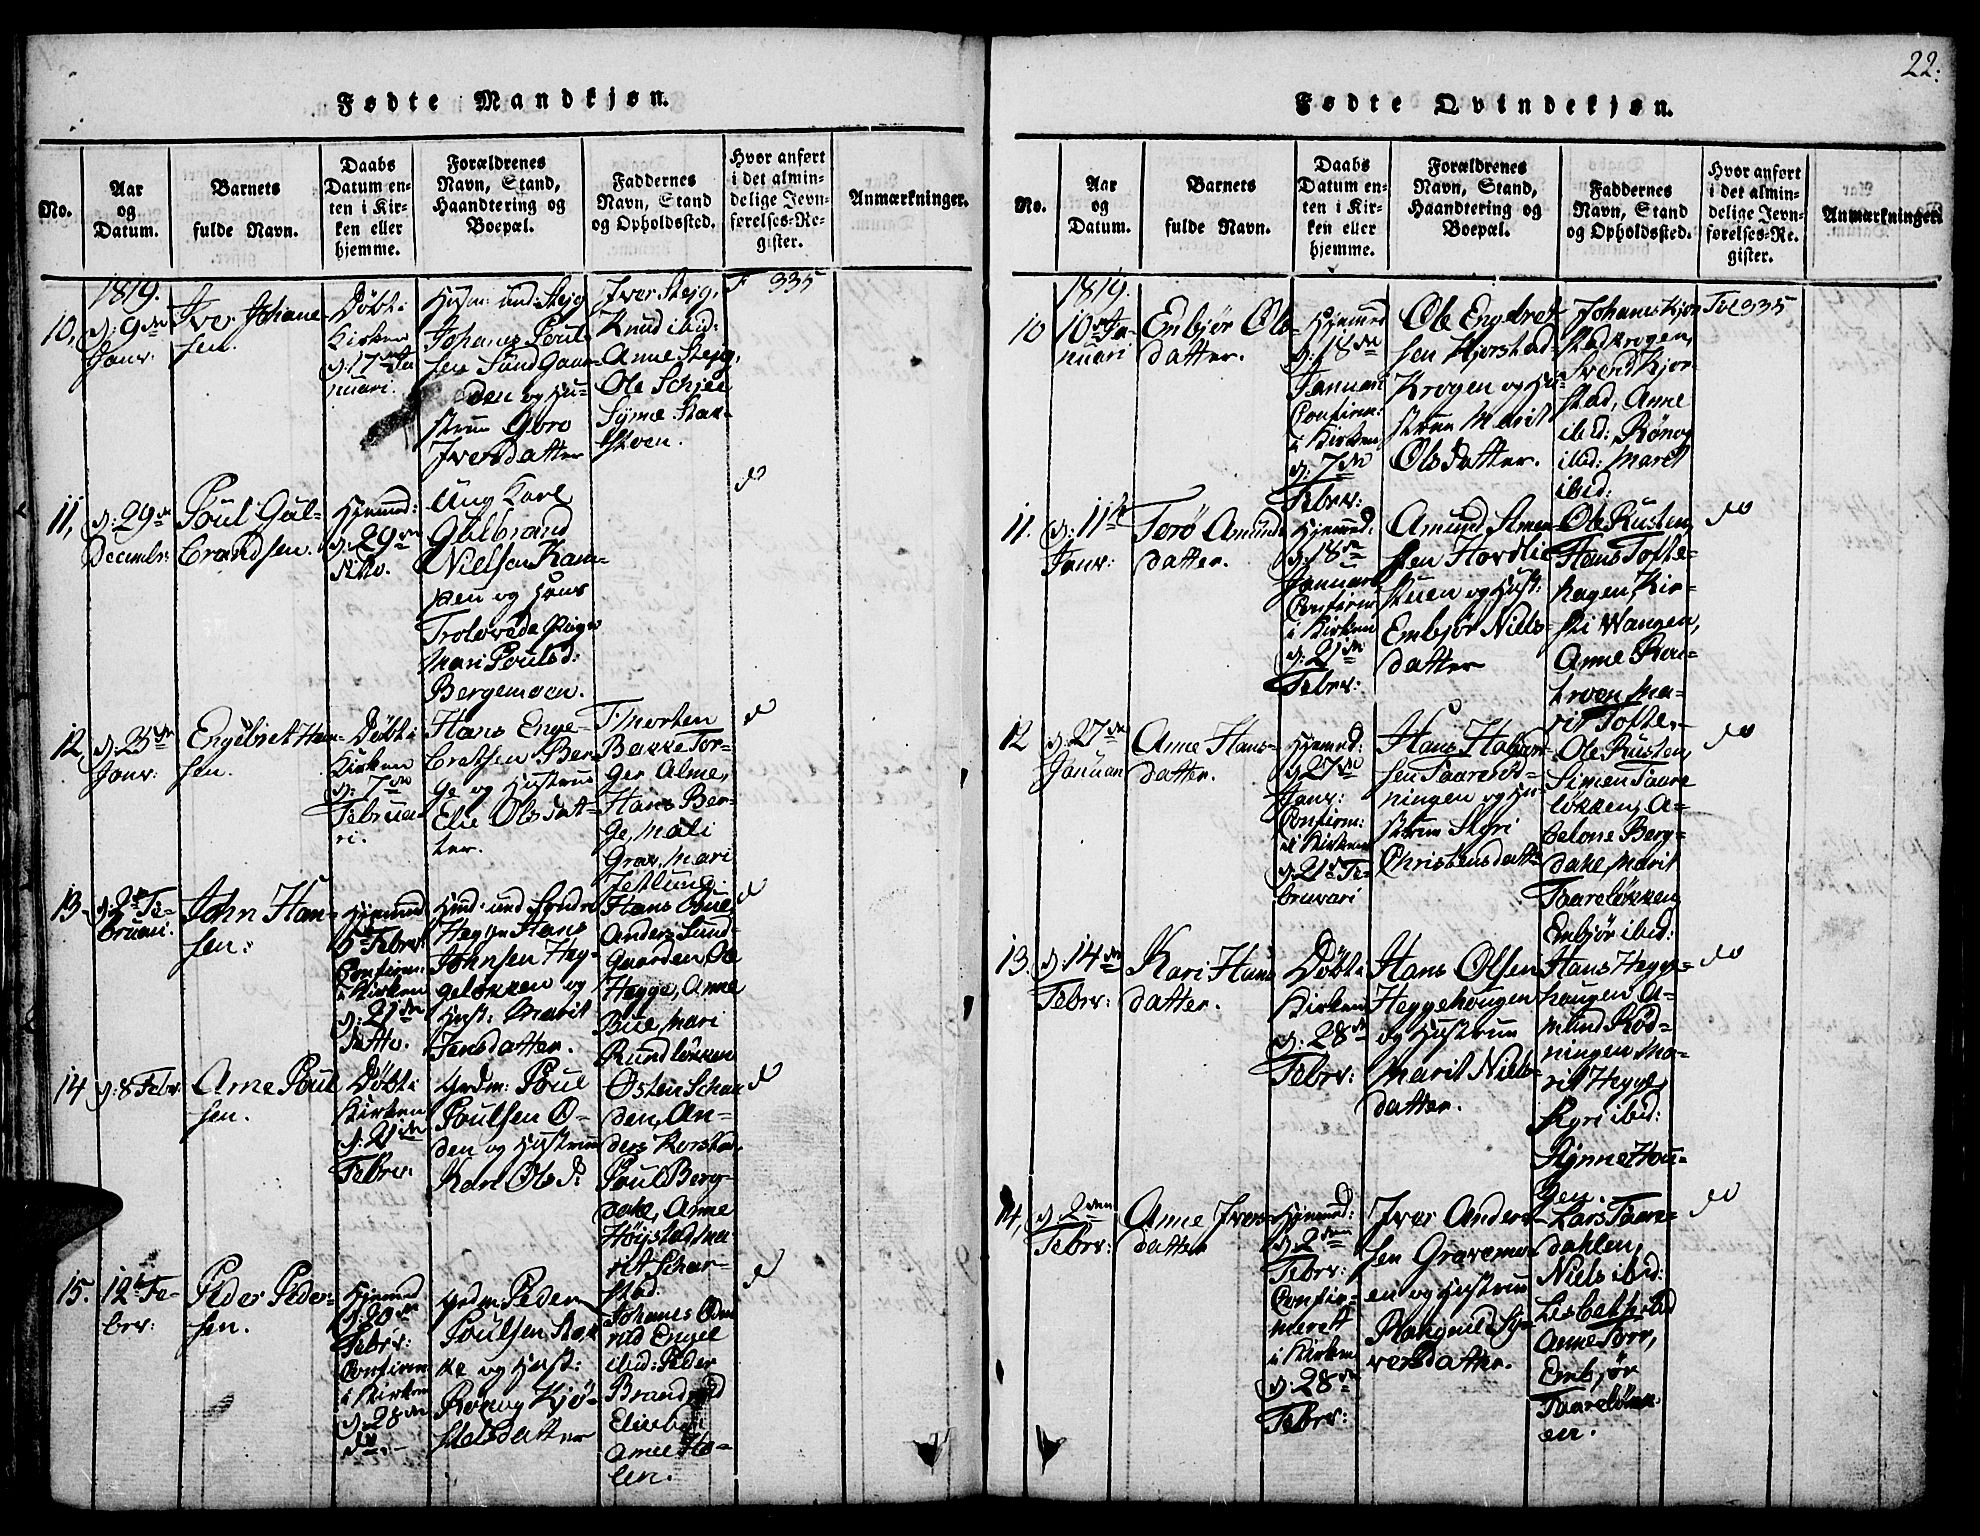 22.
Fødte Mandkjøn.
No.
Aar
og
Datum.
Barnets
fulde Navn.
Daabs
Datum en-
ten i Kir-
ken eller
hjemme.
Forældrenes
Navn, Stand,
Haandtering og
Boepæl.
Faddernes
Navn, Stand
og Opholdssted.
Hvor anført
i det almin-
delige Jevn-
førelses-Re-
gister.
Anmærkninger.
1819.
10,
d: 9de
Janr:
Iver Johane-
sen.
Døbt i
Kirken
d: 17de Ja
nuari.
Huusm: und: Stejg
Johanes Poul
sen Sundgaar
den og Hu-
strue Goro
Iversdatter
Iver Stejg,
Knud ibid:
Anne Stejg,
Ole Schjee
Syme Stak-
stoen.
F 335
11,
d: 29de
Decembr:
Poul Gul-
brandsen.
Hjemmed:
d: 29de
Ung Karl
Gulbrand
Nielsen Kam-
pen og hans
Trolovede Pige
Mari Poulsd:
Bergemoen.
do
12,
d: 23de
Janr:
Engebret Han-
sen.
Døbt i
Kirken
d: 7de
Februa
ri.
Hans Enge-
bretsen Ber-
ge og Hustrue
Elie Olsdat-
ter.
Morten
Bakke Tor-
ger Alme,
Hans Ber-
ge, Mali
Grav, Mari
Jetlund.
do
13.
d: 2de Fe-
bruari.
John Han-
sen.
Hjemmed
5te Febr:
Confirm:
i Kirken
d: 21de
Ditto.
Huusm: und Søndre
Hegge Hans
Johnsen Heg-
geløkken og
Hust: Marit
Jensdatter.
Hans Bue,
Anders Sund-
gaarden, Ole
Hegge, Anne
Bue, Mari
Rundløkken
do
14
d: 8 Febr:
Arne Poul
sen.
Døbt i
Kirken
d: 21de
Febr:
Grdm: Poul
Poulsen O-
den og Hustrue
Kari Olsd:
Østen Schau
den, An-
ders Korstad
Poul Berg-
dahl, Anne
Høystad, Ma
rit Schar-
stad.
do
15.
12te Fe-
brr:
Peder Peder-
sen.
Hjemmed
d: 20de
Febrr:
Confirm
i Kirken
d: 28de
do
Grdm: Peder
Poulsen Bak
ke og Hust:
Ronnog Kjø-
stelsdatter
Johanes Øde
rud Engel
ibid: Peder
Brandrud
Anne Ho-
len.
do
Fødte Qvindekjøn.
No.
Aar
og
Datum.
Barnets
fulde Navn.
Daabs
Datum en-
ten i Kir-
ken eller
hjemme.
Forældrenes
Navn, Stand,
Haandtering og
Boepæl.
Faddernes
Navn, Stand
og Opholdssted.
Hvor anført
i det almin-
delige Jevn-
førelses-Re-
gister.
Anmærkninger.
1819.
10
10de Ja-
nuari
Embjør Ols-
datter.
Hjemmed
d: 18de
Januari
Confirm:
i Kirken
d: 7de
Febrr:
Ole Engebret-
sen Kjorstad-
Krogen og Hu-
strue Marit
Olsdatter.
Johans Kjor
stadkrogen,
Svend Kjor-
stad, Anne
ibid: Rønog
ibid: Maret
ibid:
Fol 335
11.
d: 11te
Janr:
Torø Amunds
datter.
Hjemmed:
d: 18de
Januari
Confirm
i Kirken
d: 21de
Febrr:
Amund Simen-
sen Hovdlie
stuen og Hust:
Embjør Niels-
datter
Ole Rusten,
Hans Tofte-
hagen, Kir-
sti Wangen,
Anne Ron-
troen, Ma-
rit Tofte.
do
12
d: 27de
Januari
Anne Hans-
datter.
Hjemmed:
d: 27de
Janr:
Confirm:
i Kirken
d: 21de Fe-
bruari
Hans Halvor-
sen Taarerød-
ningen og Hu-
strue Sigri
Christensdatter
Ole Rusten,
Simen Taare
løkken, A-
belone Berg-
dahl, Marit
Taareløkken
Embjør ibid:
do
13.
d: 14de
Febrr:
Kari Hans
datter.
Døbt i
Kirken
d: 28de
Febrr:
Hans Olsen
Heggehougen
og Hustrue
Marit Niels-
datter.
Hans Hegge-
hougen, A-
mund Rød-
ningen, Ma-
rit Hegge,
Sigri ibid:
Synne Hou-
gen.
do
14,
d: 2den
Febrr:
Anne Ivers-
datter
Hjemmed:
d: 2den
Febrr:
Confir-
meret
i Kirken
d: 28de
Febrr:
Iver Ander-
sen Gravemo-
en og Hustrue
Rangnild Sy-
versdatter.
Lars Taare-
dahlen,
Niels ibid:
Lisbeth ibid
Anne Torv,
Embjør
Taareløkk-
en.
do